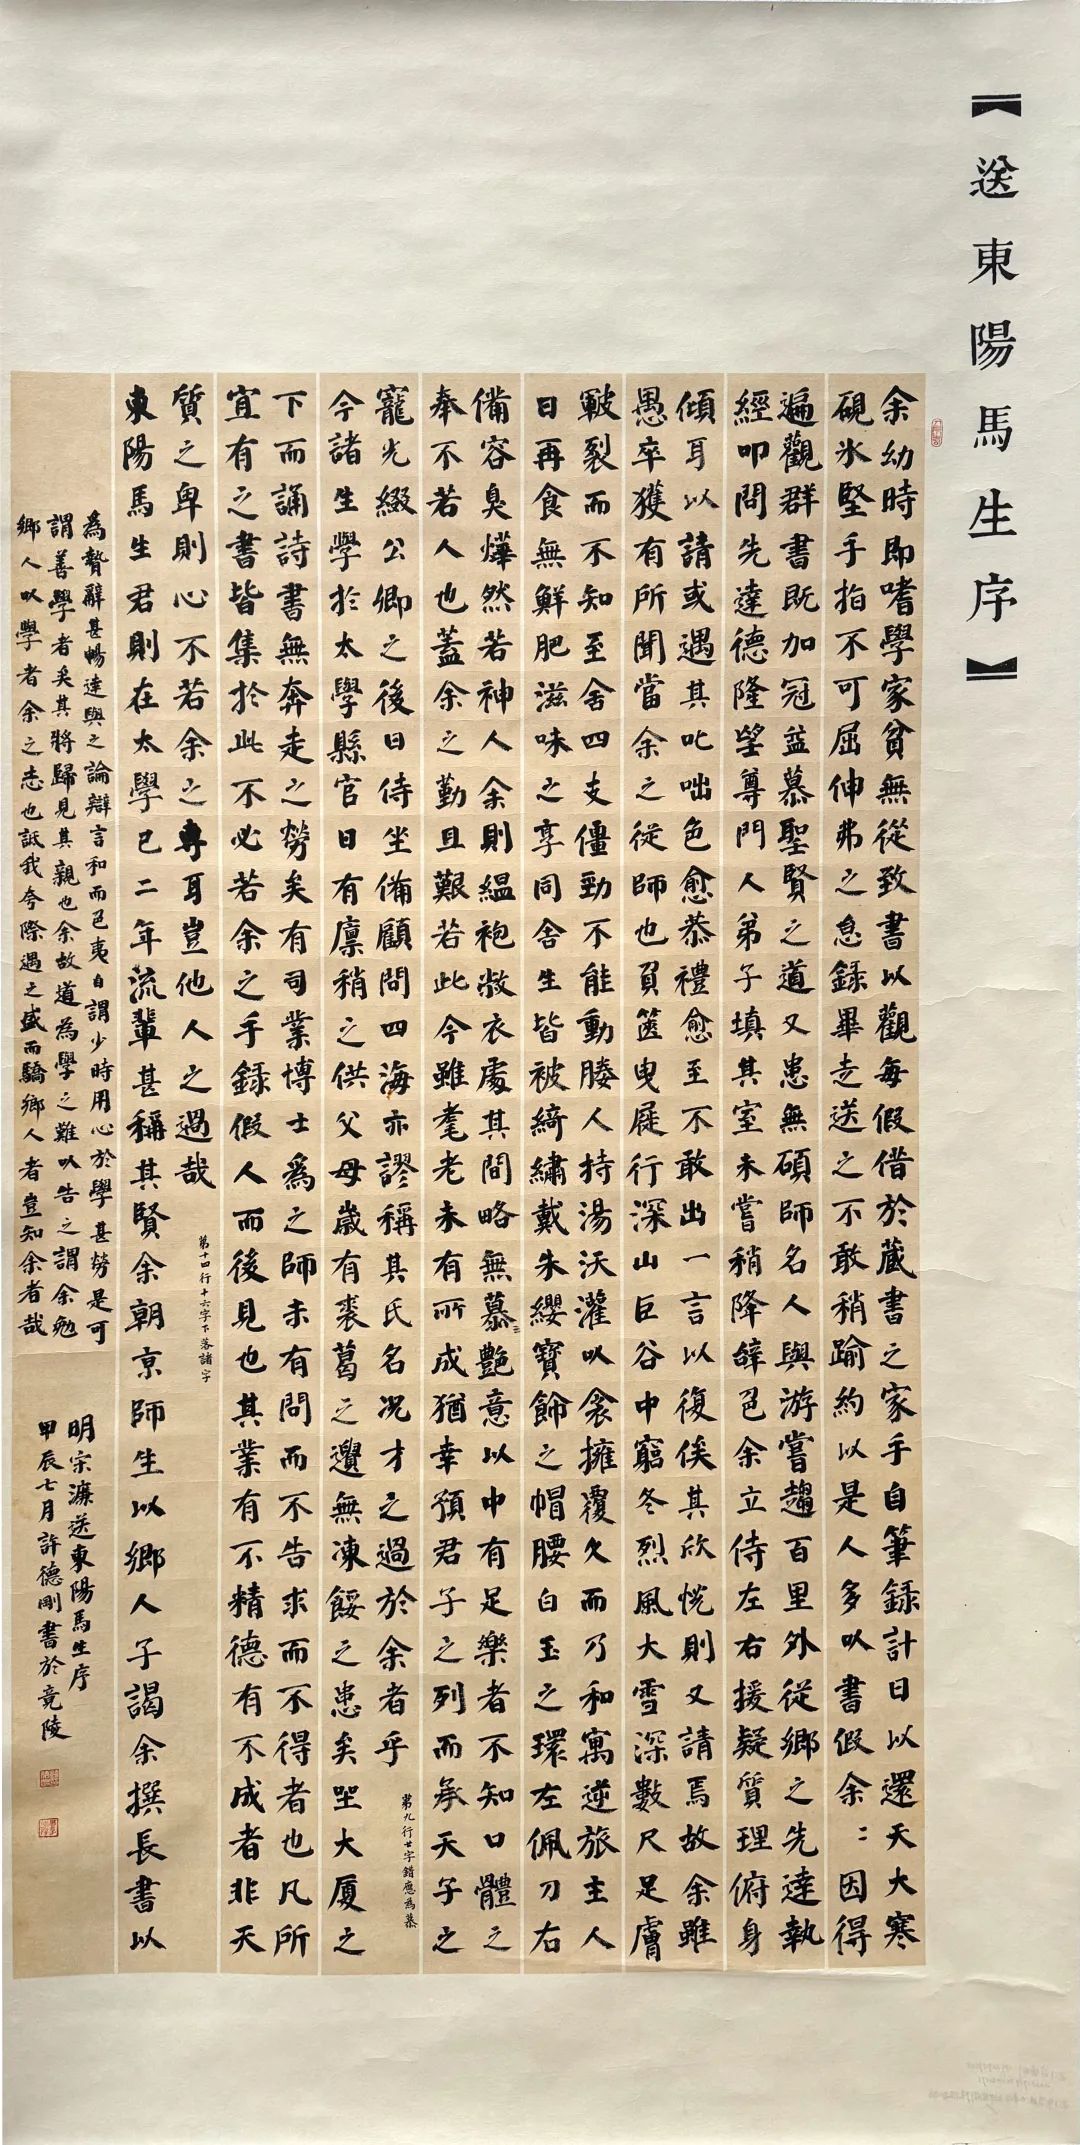 【送東陽馬生序】
余幼時即嗜學家貧無從致書以觀每假借於藏書之家手自筆録計日以還天大寒
硯冰堅手指不可屈伸弗之怠録畢走送之不敢稍踰約以是人多以書假余：因得
遍觀群書既加冠益慕聖賢之道又患無碩師名人與游嘗趨百里外從鄉之先達執
經叩問先達德隆望尊門人弟子填其室未嘗稍降辭色余立侍左右援疑質理俯身
傾耳以請或遇其叱咄色愈恭禮愈至不敢出一言以復俟其欣悦則又請焉故余雖
愚卒獲有所聞當余之從師也負篋曳屣行深山巨谷中窮冬烈風大雪深數尺足膚
皸裂而不知至舍四支僵勁不能動媵人持湯沃灌以衾擁覆久而乃和寓逆旅主人
日再食無鮮肥滋味之享同舍生皆被綺繡戴朱纓寶飾之帽腰白玉之環左佩刀右
備容臭燁然若神人余則緼袍敝衣處其間略無慕艷意以中有足樂者不知口體之
奉不若人也蓋余之勤且艱若此今雖耄老未有所成猶幸預君子之列而承天子之
寵光綴公卿之後日侍坐備顧問四海亦謬稱其氏名况才之過於余者乎
第九行廿字錯應為慕
今諸生學於太學縣官日有廩稍之供父母歲有裘葛之遺無凍餒之患矣坐大厦之
下而誦詩書無奔走之勞矣有司業博士爲之師未有問而不告求而不得者也凡所
宜有之書皆集於此不必若余之手録假人而後見也其業有不精德有不成者非天
質之卑則心不若余之專耳豈他人之過哉
第十四行十六字下落諸字
東陽馬生君則在太學已二年流輩甚稱其賢余朝京師生以鄉人子謁余撰長書以
為贄辭甚暢達與之論辯言和而色夷自謂少時用心於學甚勞是可
謂善學者矣其將歸見其親也余故道為學之難以告之謂余勉
鄉人以學者余之志也詆我夸際遇之盛而驕鄉人者豈知余者哉
明宗濂送東陽馬生序
甲辰七月許德剛書於竟陵